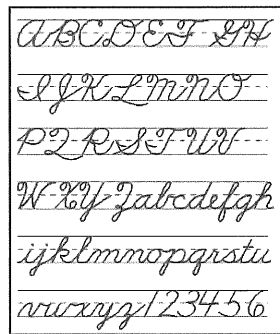 ABCDEF GH
IJKLMNO
PQRSTUV
WXYZabcdefgh
ijklmnopqrstu
vwxyz123456